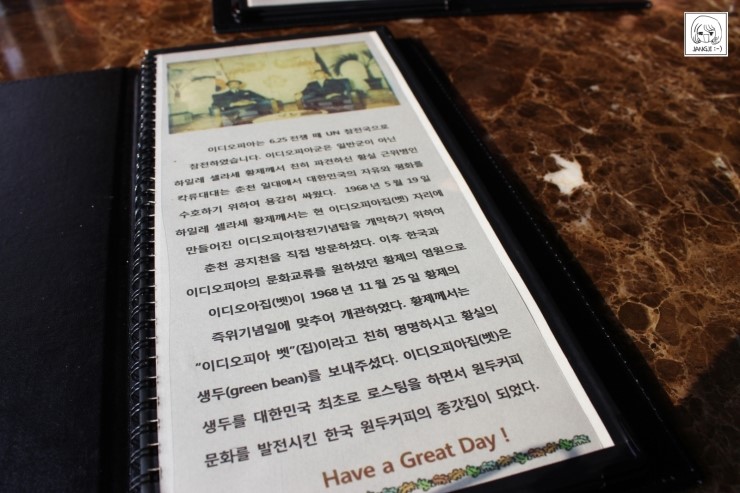 JANGJI :-)
이디오피아는 6.25전쟁 때 UN 참전국으로
참전하였습니다. 이디오피아군은 일반군이 아닌
하일레 셀라세 황제께서 친히 파견하신 황실 근위병인
칵류대대는 춘천 일대에서 대한민국의 자유와 평화를
수호하기 위하여 용감히 싸웠다. 1968년 5월 19일
하일레 셀라세 황제께서는 현 이디오피아집(벳) 자리에
만들어진 이디오피아참전기념탑을 개막하기 위하여
춘천 공지천을 직접 방문하셨다. 이후 한국과
이디오피아의 문화교류를 원하셨던 황제의 염원으로
이디오아집(벳)이 1968년 11월 25일 황제의
즉위기념일에 맞추어 개관하였다. 황제께서는
"이디오피아 벳"(집)이라고 친히 명명하시고 황실의
생두(green bean)를 보내주셨다. 이디오피아집(벳)은
생두를 대한민국 최초로 로스팅을 하면서 원두커피
문화를 발전시킨 한국 원두커피의 종갓집이 되었다.
Have a Great Day !